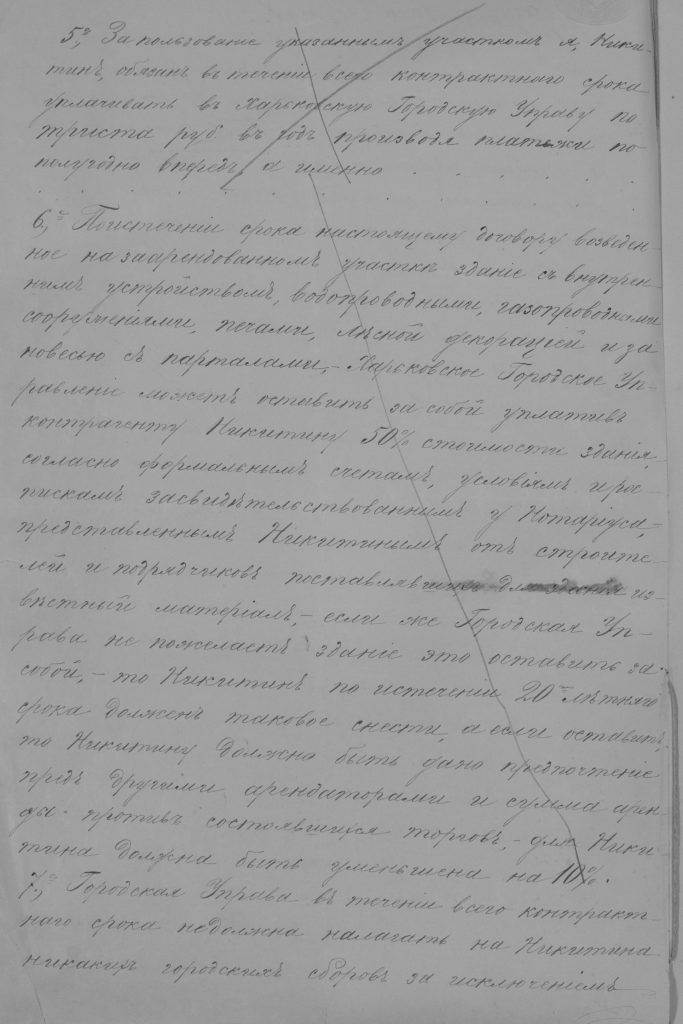 5.) За пользованіе указаннымъ участкомъ я, Ники-
тинъ, обязанъ въ теченіи всего контрактнаго срока
уплачивать въ Харьковскую Городскую Управу по
триста руб. въ годъ производя платежи по-
полугодно впередъ, а именно . . . . .
6.) По истеченіи срока настоящему договору возведен-
ное на заарендованномъ участкѣ зданіе съ внутрен-
нимъ устройствомъ, водопроводными, газопроводными
сооруженіями, печами, лѣсной декораціей и за
новесью съ парталами,- Харьковское Городское Уп-
равленіе можетъ оставить за собой уплативъ
контрагенту Никитину 50% стоимости зданія,
согласно формальнымъ счетамъ, условіямъ и рос-
пискамъ засвидѣтельствованнымъ у Нотаріуса,-
представленнымъ Никитинымъ отъ строите-
лей и подрядчиковъ поставлявшихъ для зданія из-
вѣстный матеріалъ,- если же Городская Уп-
рава не пожелаетъ зданіе это оставить за
собой,- то Никитинъ по истеченіи 20 лѣтняго
срока долженъ таковое снести, а если оставитъ,
то Никитину должно быть дано предпочтеніе
предъ другими арендаторами и сумма арен-
ды противъ состоявшихся торговъ,- для Ники-
тина должна быть уменьшена на 10%.
7.) Городская Управа въ теченіи всего контракт-
наго срока недолжна налагать на Никитина
никакихъ городскихъ сборовъ за исключеніемъ